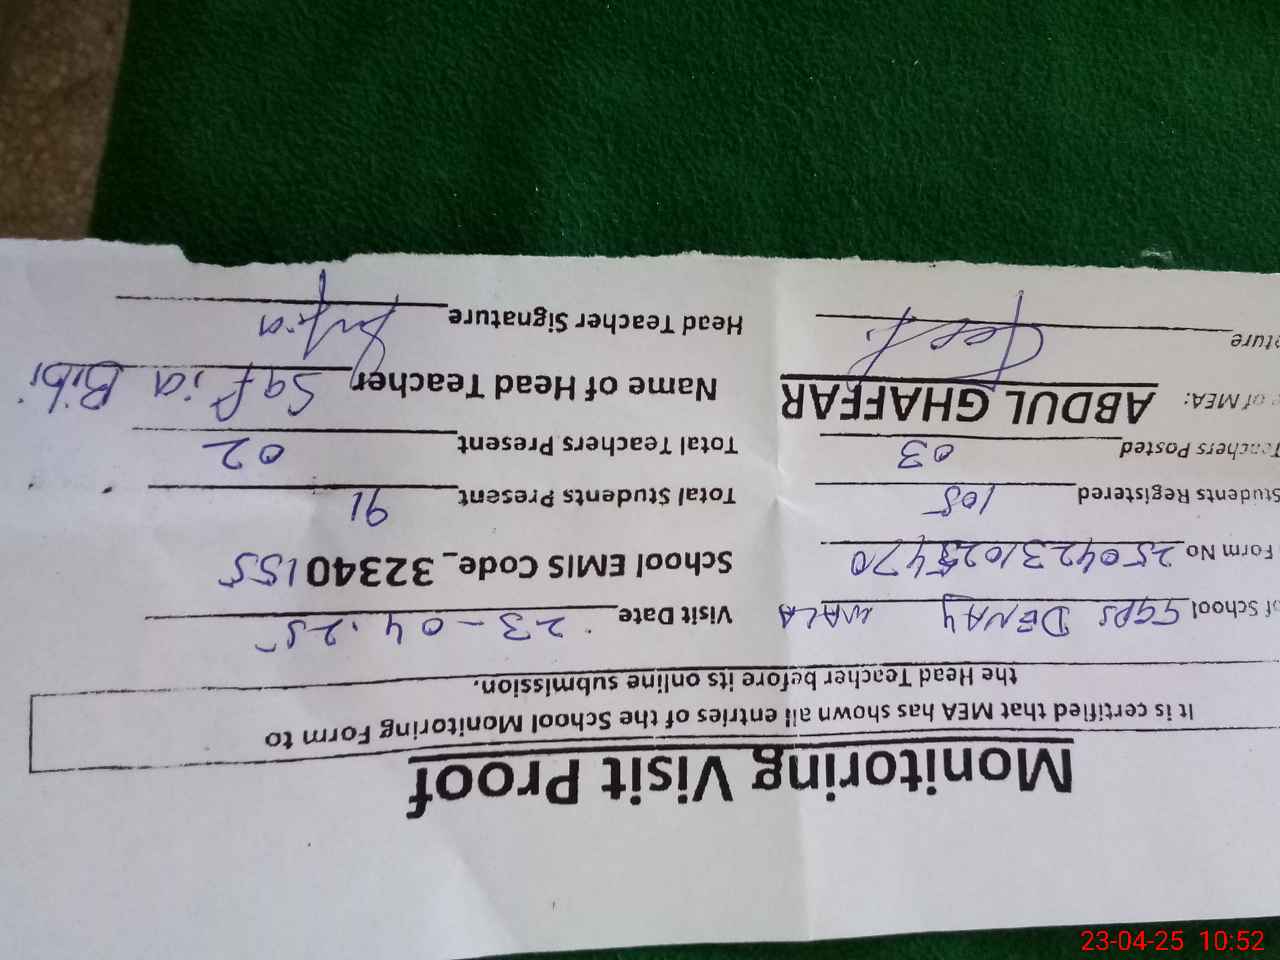 Monitoring Visit Proof
It is certified that MEA has shown all entries of the School Monitoring Form to
the Head Teacher before its online submission.
of School GGPS DENAY WALA Visit Date 23-04.25
Form No 2504231025470 School EMIS Code_32340155
Students Registered 105 Total Students Present 91
Teachers Posted 03 Total Teachers Present 02
of MEA: ABDUL GHAFFAR Name of Head Teacher Safia Bibi
ature Head Teacher Signature Safia
23-04-25 10:52